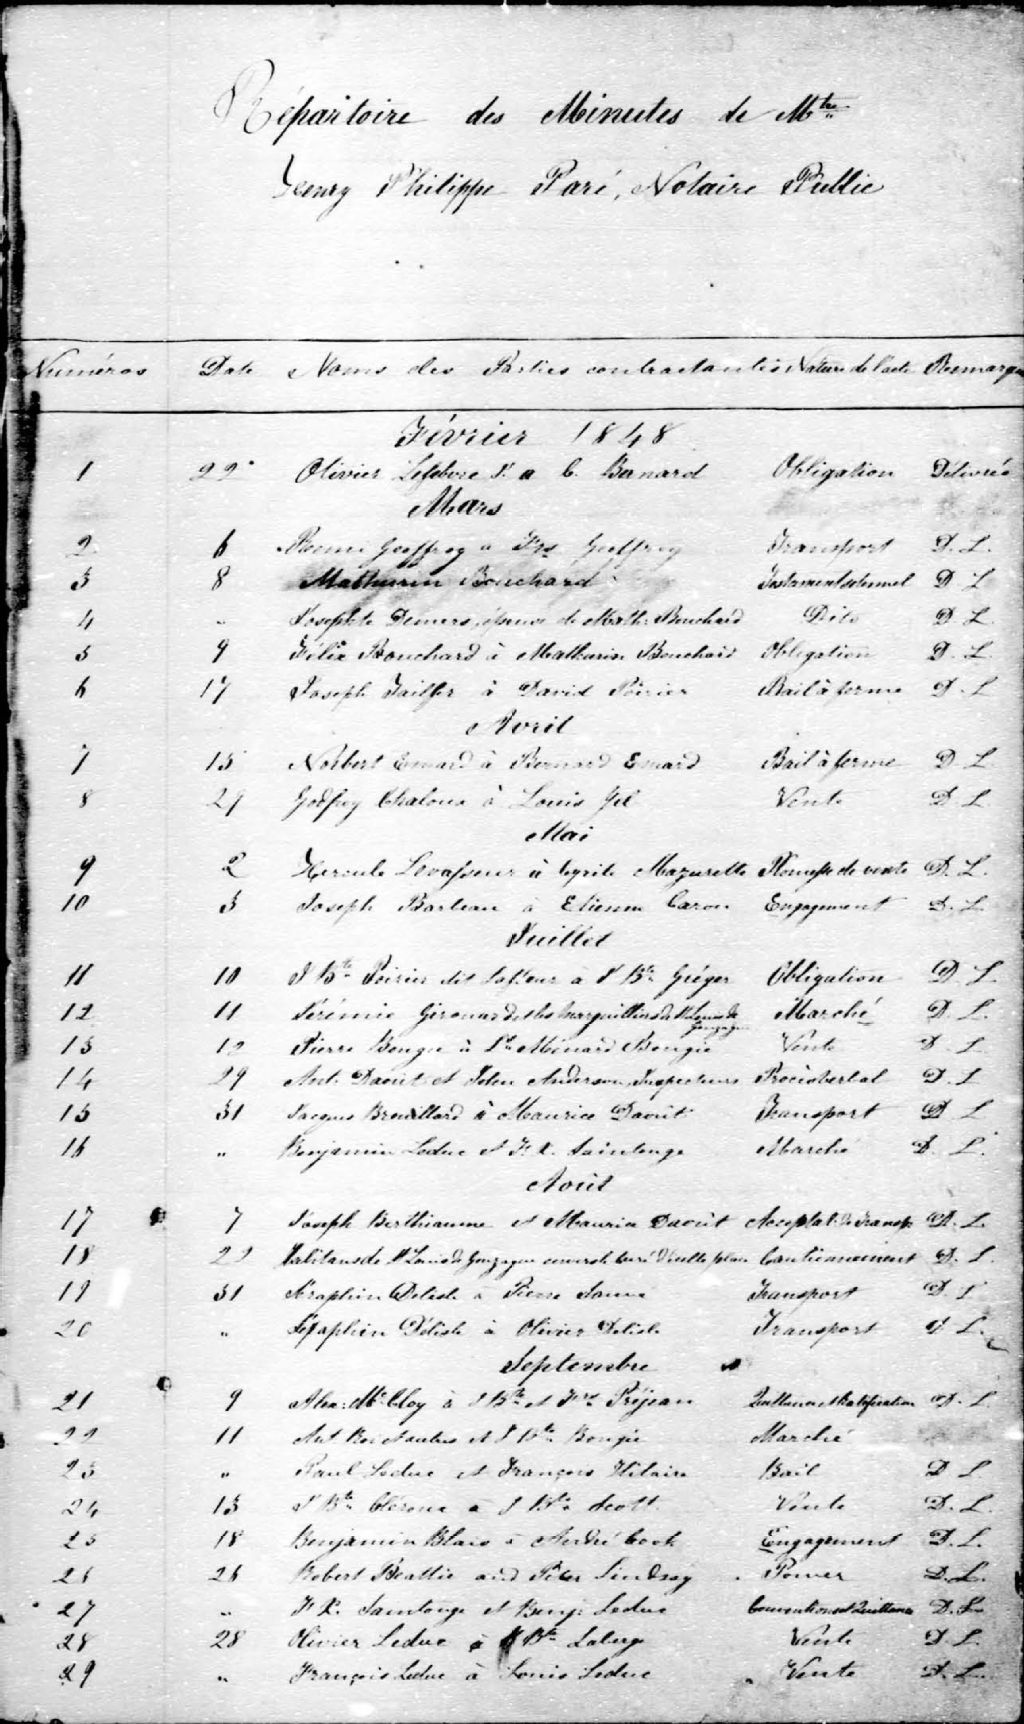 Répertoire des Minutes de Mtre
Henry Philippe Paré, Notaire Public
Numéros Date Noms des Parties contractantes Nature de l'acte Remarque
Février 1848
1 22 Olivier Lefebvre à C. Bernard Obligation Délivrée
Mars
2 6 Geoffroy à Frs Geoffroy Transport D. L.
3 8 Mathurin Bouchard Testament solennel D. L
4 " Josephte Demers, épouse de Math. Bouchard Dito D. L.
5 9 Félix Bouchard à Mathurin Bouchard Obligation D. L.
6 17 Joseph à David Poirier Bail à ferme D. L
Avril
7 15 Norbert Emard à Bernard Emard Bail à ferme D. L
8 29 Godfroy à Louis Vente D L
Mai
9 2 Hercule Levasseur à Mazurette Promesse de vente D. L.
10 5 Joseph à Etienne Caron Engagement D. L.
Juillet
11 10 J Bte Poirier dit à J Bte Obligation D. L.
12 11 Jérémie Girouard et les Marguilliers de St Louis de Gonzague Marché D. L.
13 12 Pierre Bougie à Ménard Bougie Vente D. L
14 29 Ant. Daoust et John Anderson, Inspecteurs Procès verbal D. L
15 31 Jacques Brouillard à Maurice Daoût Transport D L
16 " Benjamin Leduc et F. X. Saintonge Marché D. L.
Août
17 7 Joseph Berthiaume et Maurice Daoût Acceptat. de Transp. D. L.
18 22 St Louis de Gonzague Cautionnement D. L
19 31 Séraphin Delisle à Pierre Transport D. L
20 " Séraphin Delisle à Olivier Delisle Transport D L.
Septembre
21 9 Alex. McCloy à J Bte et Frs Préjean Quittance et Ratification D. L
22 11 Ant. Roi et autres et J Bte Bougie Marché
23 " Paul Leduc et François Hilaire Bail D L
24 13 J Bte à J Bte Scott Vente D. L.
25 18 Benjamin Blais à André Cook Engagement D. L.
26 26 Robert Beattie and Peter Lindsay Power D. L.
27 " F X. Saintonge et Benj. Leduc Convention et Quittance D. L.
28 28 Olivier Leduc à J Bte Laberge Vente D L.
29 " François Leduc à Louis Leduc Vente D. L.